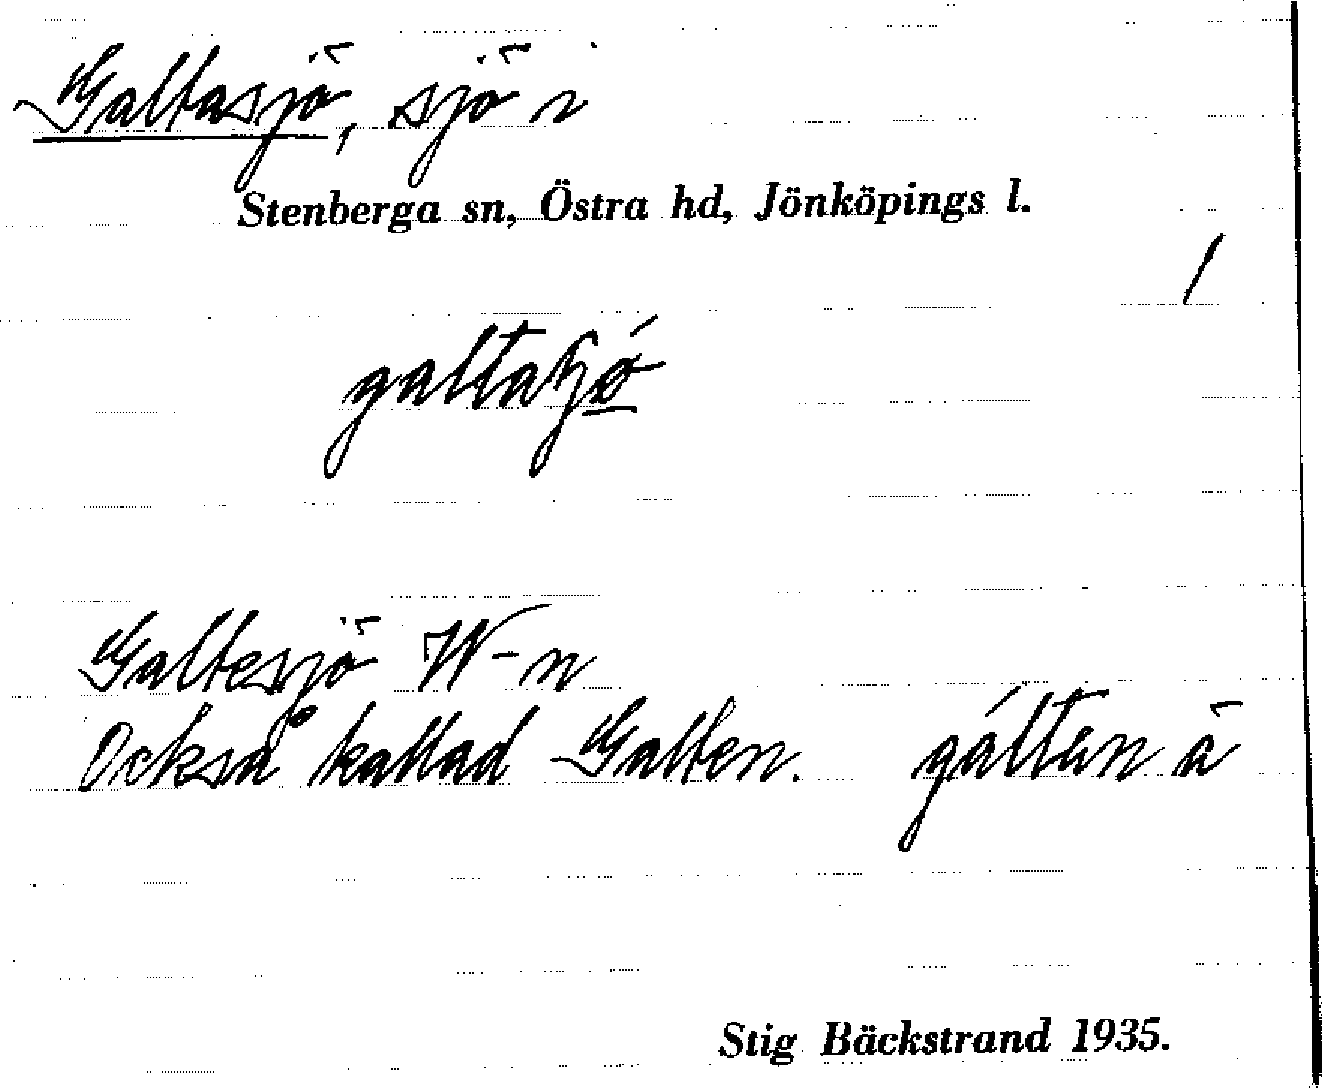 Galtasjö, sjö i
Stenberga sn, Östra hd, Jönköpings l.
/
Galtesjö W-n
Också kallad Galten. gálten ä
Stig Bäckstrand 1935.